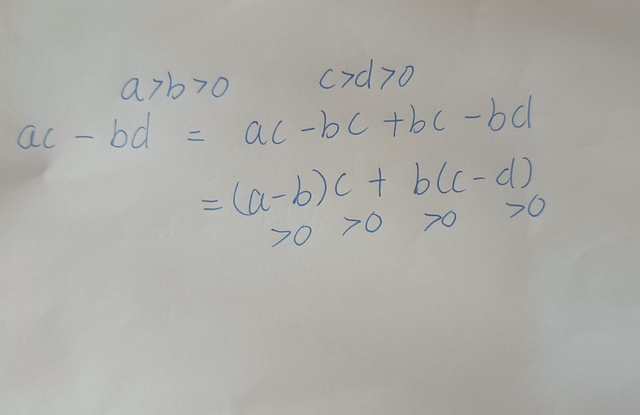 a>b>0 c>d>0
ac - bd = ac - bc + bc - bd
= (a-b)c + b(c-d)
>0 >0 >0 >0